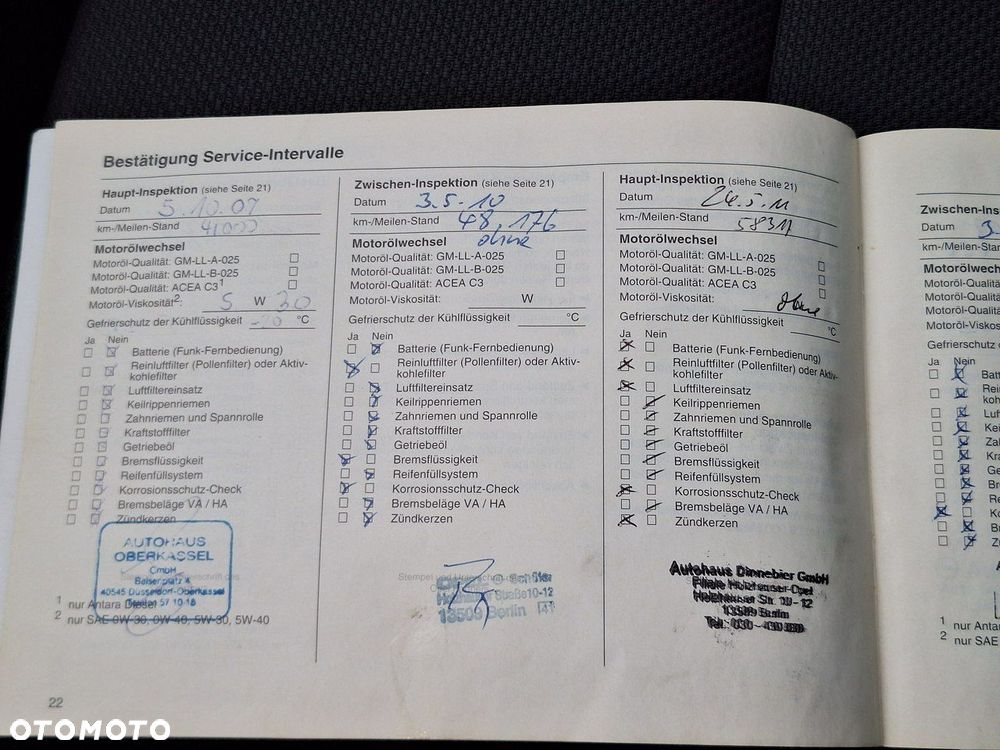 Bestätigung Service-Intervalle
Haupt-Inspektion (siehe Seite 21)
Datum 5.10.07
km-/Meilen-Stand 41000
Motorölwechsel
Motoröl-Qualität: GM-LL-A-025
Motoröl-Qualität: GM-LL-B-025
Motoröl-Qualität: ACEA C3 1
Motoröl-Viskosität2: 5 W 30
Gefrierschutz der Kühlflüssigkeit °C
Ja Nein
Batterie (Funk-Fernbedienung)
Reinluftfilter (Pollenfilter) oder Aktiv-
kohlefilter
Luftfiltereinsatz
Keilrippenriemen
Zahnriemen und Spannrolle
Kraftstofffilter
Getriebeöl
Bremsflüssigkeit
Reifenfüllsystem
Korrosionsschutz-Check
Bremsbeläge VA / HA
Zündkerzen
AUTOHAUS
OBERKASSEL
GmbH
Belsenplatz
40545 Düsseldorf-Oberkassel
57 10-18
1 nur Antara Diesel
2 nur SAE 0W-30, 0W-40, 5W-30, 5W-40
22
Zwischen-Inspektion (siehe Seite 21)
Datum 3.5.10
km-/Meilen-Stand 48.176
Motorölwechsel ohne
Motoröl-Qualität: GM-LL-A-025
Motoröl-Qualität: GM-LL-B-025
Motoröl-Qualität: ACEA C3
Motoröl-Viskosität: W
Gefrierschutz der Kühlflüssigkeit °C
Ja Nein
Batterie (Funk-Fernbedienung)
Reinluftfilter (Pollenfilter) oder Aktiv-
kohlefilter
Luftfiltereinsatz
Keilrippenriemen
Zahnriemen und Spannrolle
Kraftstofffilter
Getriebeöl
Bremsflüssigkeit
Reifenfüllsystem
Korrosionsschutz-Check
Bremsbeläge VA / HA
Zündkerzen
Stempel und Unterschrift
Straße 10-12
13509 Berlin
Haupt-Inspektion (siehe Seite 21)
Datum 24.5.11
km-/Meilen-Stand 58311
Motorölwechsel
Motoröl-Qualität: GM-LL-A-025
Motoröl-Qualität: GM-LL-B-025
Motoröl-Qualität: ACEA C3
Motoröl-Viskosität: ohne
Gefrierschutz der Kühlflüssigkeit °C
Ja Nein
Batterie (Funk-Fernbedienung)
Reinluftfilter (Pollenfilter) oder Aktiv-
kohlefilter
Luftfiltereinsatz
Keilrippenriemen
Zahnriemen und Spannrolle
Kraftstofffilter
Getriebeöl
Bremsflüssigkeit
Reifenfüllsystem
Korrosionsschutz-Check
Bremsbeläge VA / HA
Zündkerzen
Autohaus Dinnebier GmbH
Filiale Holzhauser-Opel
Holzhauser Str. 10 - 12
13509 Berlin
Tel.: 030 -
Zwischen-Ins
Datum 3.
km-/Meilen-Stand
Motorölwechs
Motoröl-Qualitä
Motoröl-Qualitä
Motoröl-Qualitä
Motoröl-Viskosi
Gefrierschutz d
Ja Nein
Batt
Rein
koh
Luf
Kei
Za
Kra
Ge
Br
Re
Ko
Br
Zü
1 nur Antar
2 nur SAE
OTOMOTO